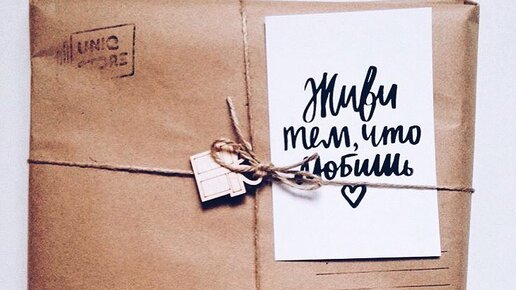 UNIQ
STORE
Живи
тем, что
любишь